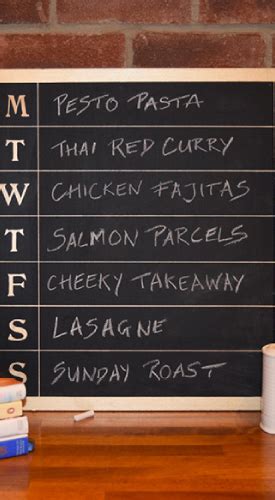 M PESTO PASTA
T THAI RED CURRY
W CHICKEN FAJITAS
T SALMON PARCELS
F CHEEKY TAKEAWAY
S LASAGNE
S SUNDAY ROAST